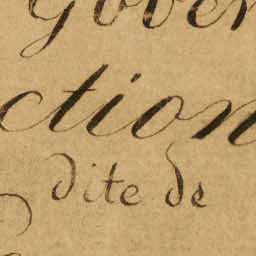 gover
ction
dite de